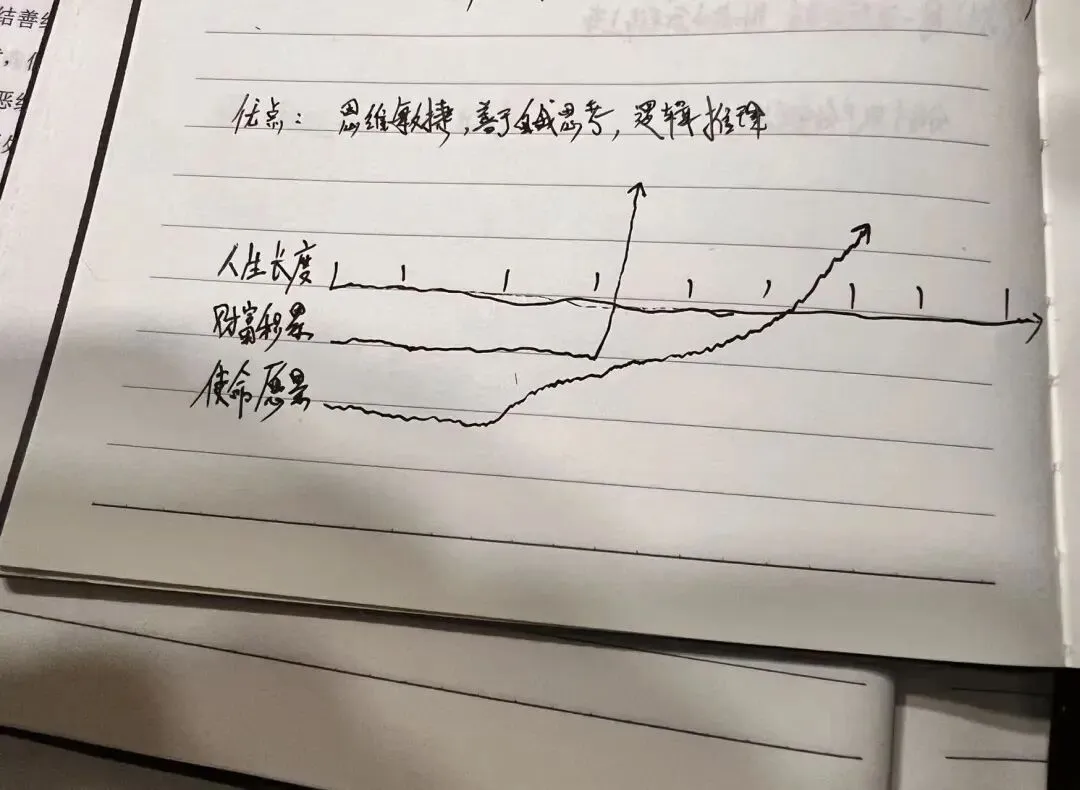 结善
恶
优点：思维敏捷，善于自我思考，逻辑推理
人生长度
财富积累
使命愿景